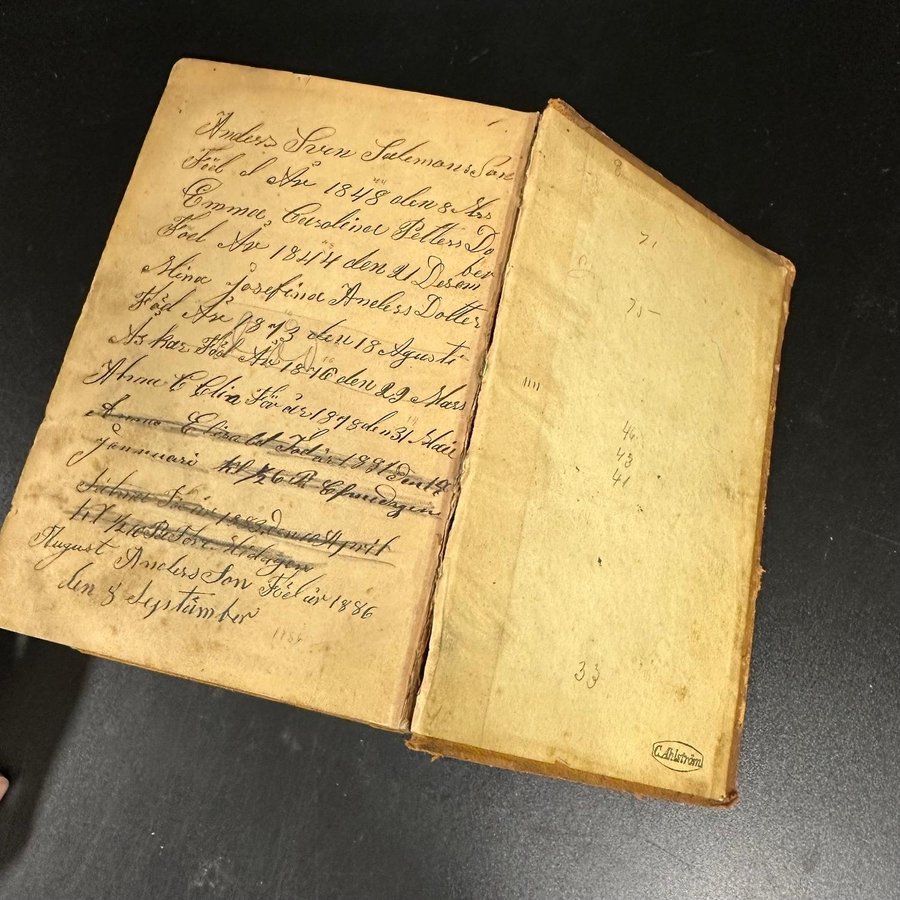 Anders Sven Salemons Son
Föd d År 1848 den 8 Mrs
Emma Carolina Petters Do
Född År 1844 den 21 Desem
ber
Mina Josefina Anders Dotter
Föd År 1873 den 18 Agusti
Askar Föd År 1876 den 29 Mars
Alma C Elin För år 1878 den 31 Maii
Anna Elisabet Född år 1881 den 14
Jannuari kl 1/26
Född år 1883 den 10 April
kl 1/2 10 Midagen
August Anders Son Föd år 1886
den 8 September
1886
71
75-
46
43
41
33
C. Ahlström